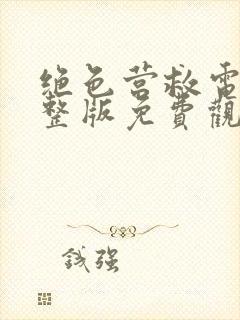 绝色营救電
整版免費觀
钱强